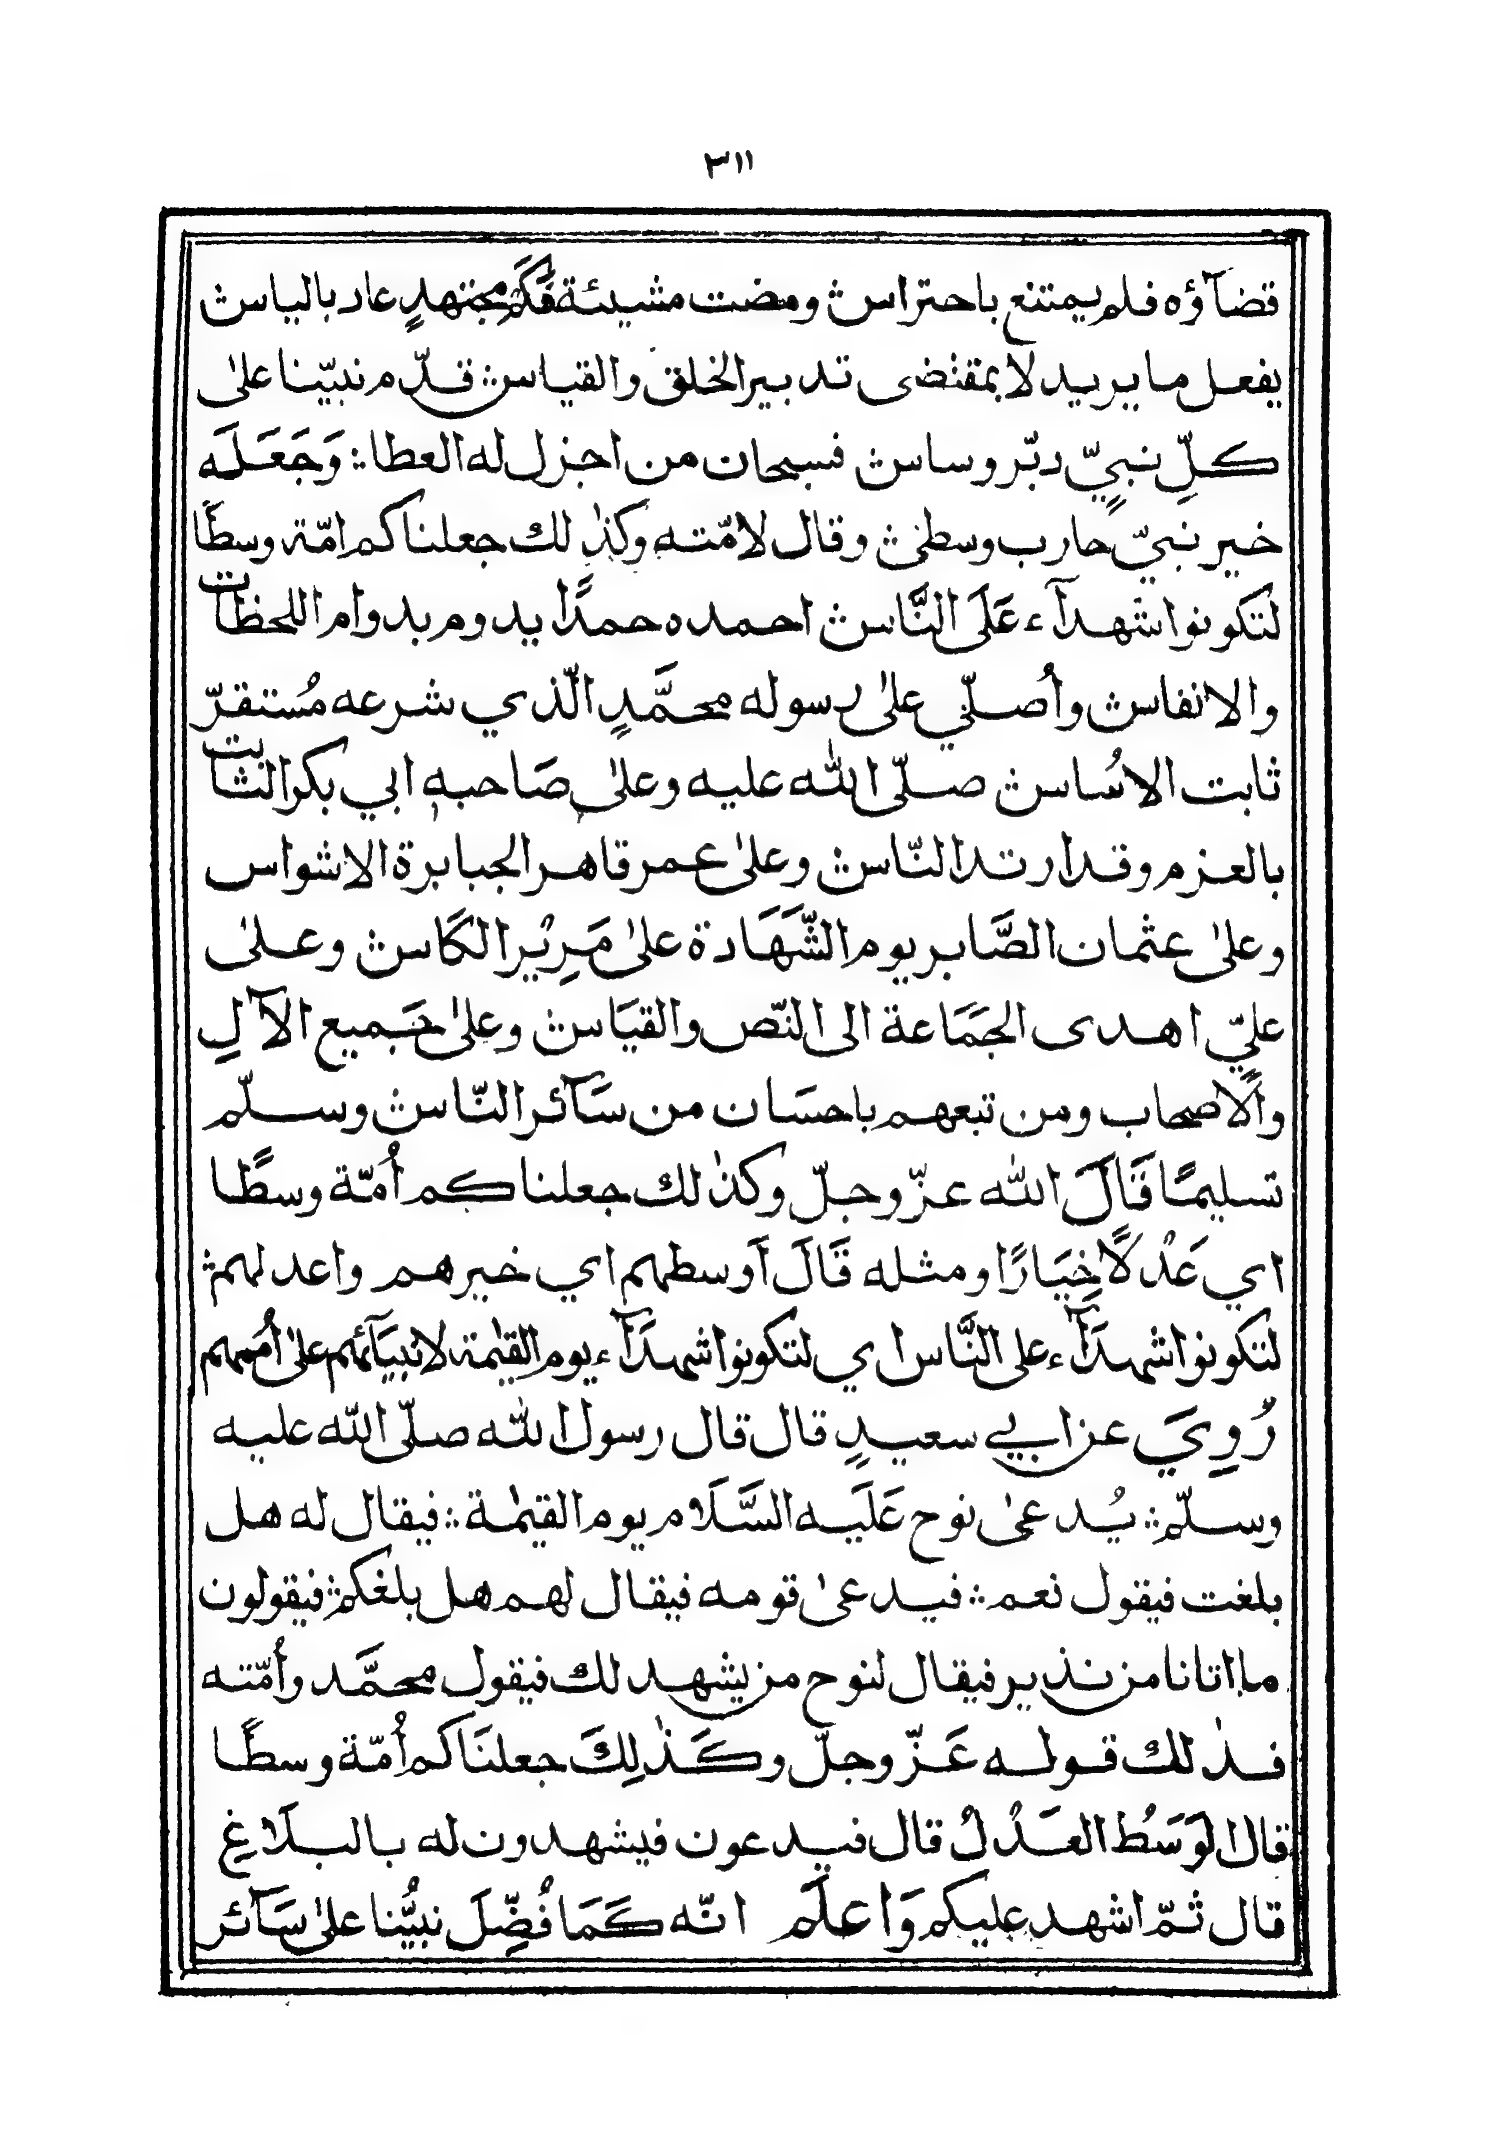 ٣١١
قضآؤه فلم يمتنع باحتراس ؞ ومضت مشيئة فكم مجتهدٍ عاد بالياس ؞
يفعل ما يريد لا بمقتضى تدبير الخلق والقياس ؞ قدّم نبيّنا على
كلّ نبيّ دبّر وساس ؞ فسبحان من اجزل له العطا ؞ وَجَعَلَه
خير نبيّ حارب وسطى ؞ وقال لامّته وكذٰلك جعلناكم امّة وسطًا
لتكونوا شهدآء عَلَى النَّاس ؞ احمده حمدًا يدوم بدوام اللحظات
والانفاس ؞ وأُصلّي علىٰ رسوله محمَّدٍ الّذي شرعه مُستقرّ
ثابت الاُساس ؞ صلّى اللّٰه عليه وعلىٰ صَاحبه ابي بكر الثابت
بالعزم وقد ارتد النّاس ؞ وعلىٰ عمر قاهر الجبابرة الاشواس
وعلىٰ عثمان الصَّابر يوم الشَّهَادة علىٰ مَرِيْر الكَاس ؞ وعلىٰ
عليّ اهدى الجمَاعة الى النّص والقيَاس ؞ وعلىٰ جَميع الآلِ
والاَصحاب ومن تبعهم باحسَان من سَآئر النّاس ؞ وسلّم
تسليمًا قَالَ اللّٰه عزّ وجلّ وكذٰلك جعلناكم أُمّة وسطًا
اي عَدْلًا خِيَارًا ومثله قَالَ أَوسطهم اي خيرهم واعدلهم ؞
لتكونوا شهدَآء على النَّاس اي لتكونوا شهدَآء يوم القيٰمة لانبيَآئهم علىٰ أُممهم
رُوِيَ عن ابي سعيدٍ قال قال رسول اللّٰه صلّى اللّٰه عليه
وسلّم ؞ يُدعىٰ نوح عَلَيه السَّلَام يوم القيٰمة ؞ فيقال له هل
بلغت فيقول نعم ؞ فيدعىٰ قومه فيقال لهم هل بلغكم ؞ فيقولون
ما اتانا من نذير فيقال لنوح من يشهد لك فيقول محمَّد وأُمّته
فذٰلك قوله عَزّ وجلّ وكَذٰلِكَ جعلنَاكم أُمّة وسطًا
قال الوَسَطُ العَدْلُ قال فيدعون فيشهدون له بالبلَاغِ
قال ثمّ اشهد عليكم وَاعلَم انّه كَمَا فُضِّلَ نبيُّنا علىٰ سَآئر